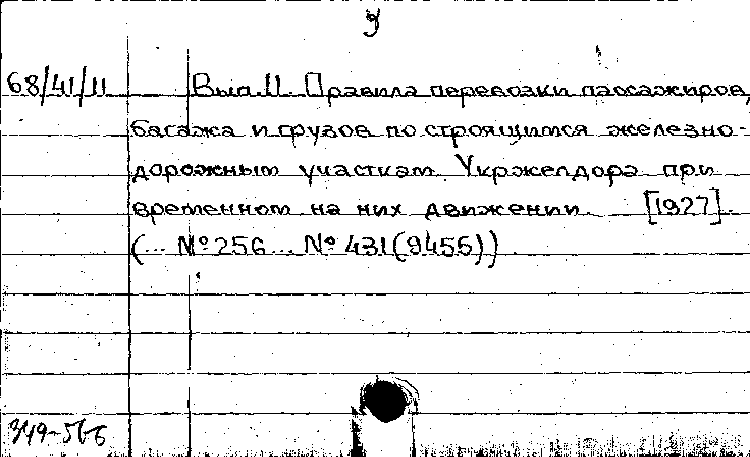 9
68/41/11 Вып. 11. Правила перевозки пассажиров,
багажа и грузов по строящимся железно-
дорожным участкам Укржелдора при
временном на них движении. [1927].
(... № 256... № 431(9455))
349-566